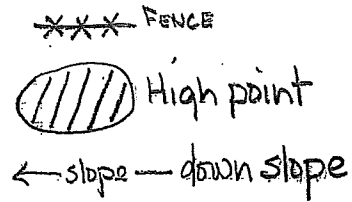 FENCE
High point
slope down slope